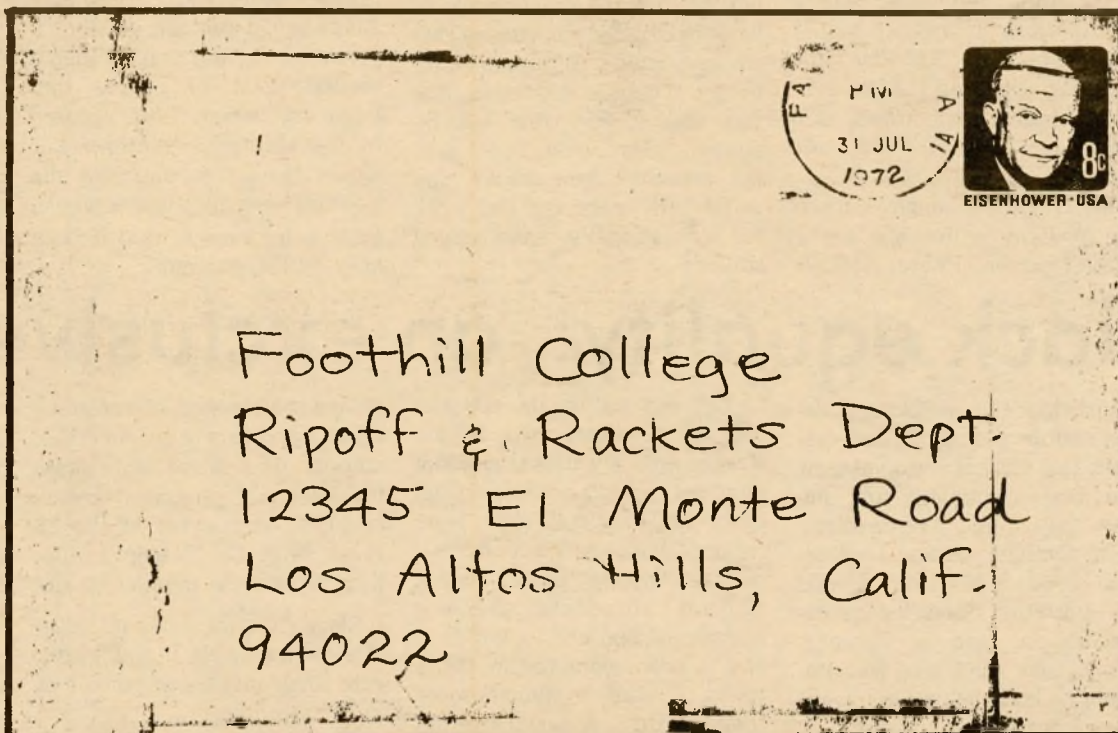 PM
31 JUL
1972
8c
EISENHOWER·USA
Foothill College
Ripoff & Rackets Dept.
12345 El Monte Road
Los Altos Hills, Calif.
94022